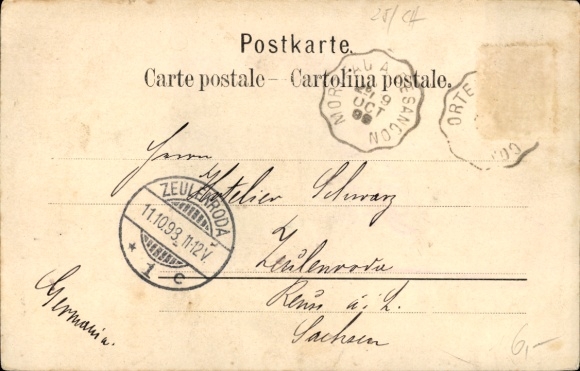 25/CH
Postkarte.
Carte postale — Cartolina postale.
MORTEAU A BESANCON
9
OCT
98
ORTE
Herrn
Hotelier Schwarz
ZEULENRODA
11.10.98. 11-12 V.
* 1 c
Zeulenroda
Reuss ä. L.
Sachsen
Germania.
6,-